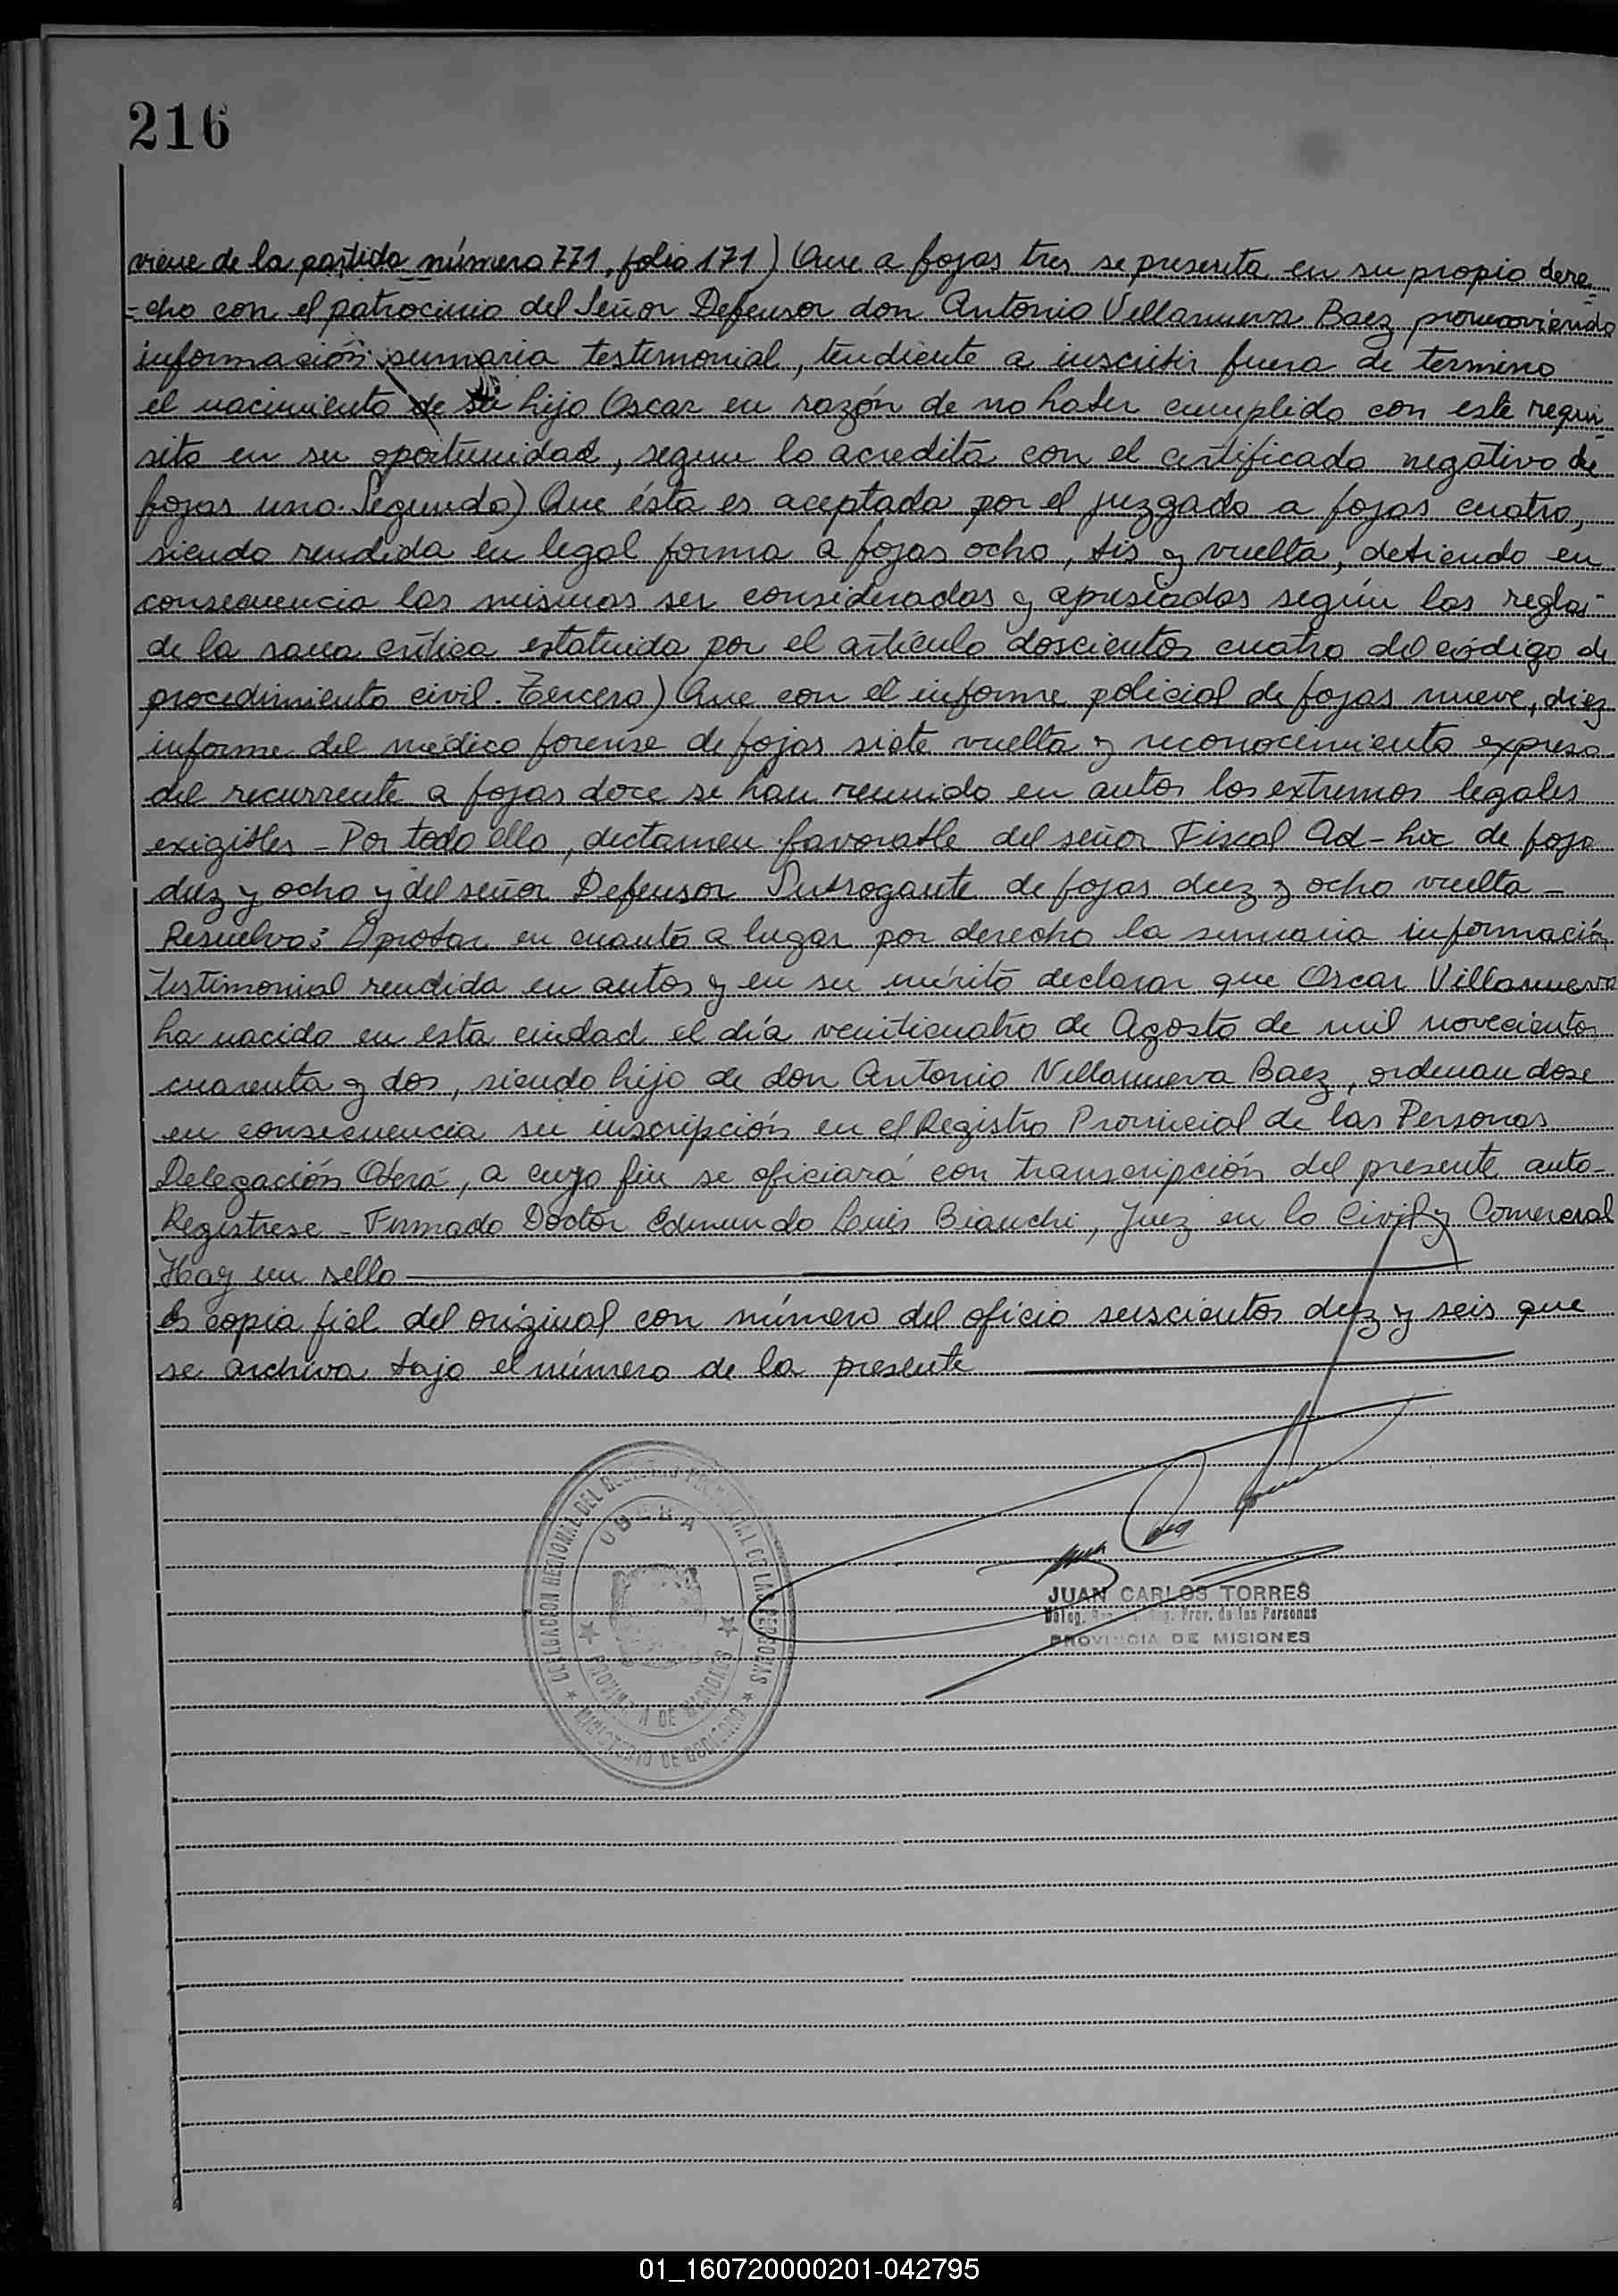 216
viene de la partida número 771, folio 171) Que a fojas tres se presenta en su propio dere-
-cho con el patrocinio del Señor Defensor don Antonio Villanueva Baez promoviendo
información sumaria testimonial, tendiente a inscribir fuera de termino
el nacimiento de su hijo Oscar en razón de no haber cumplido con este requi-
sito en su oportunidad, segun lo acredita con el certificado negativo de
fojas uno. Segundo) Que ésta es aceptada por el juzgado a fojas cuatro,
siendo rendida en legal forma a fojas ocho, bis y vuelta, debiendo en
consecuencia las mismas ser consideradas y apresiadas según las reglas
de la sana crítica estatuida por el artículo doscientos cuatro del código de
procedimiento civil. Tercero) Que con el informe policial de fojas nueve, diez
informe del médico forense de fojas siete vuelta y reconocimiento expreso
del recurrente a fojas doce se han reunido en autos los extremos legales
exigibles - Por todo ello, dictamen favorable del señor Fiscal Ad-hoc de foja
diez y ocho y del señor Defensor Subrogante de fojas diez y ocho vuelta -
Resuelvo: Aprobar en cuanto a lugar por derecho la sumaria información
testimonial rendida en autos y en su mérito declarar que Oscar Villanueva
ha nacido en esta ciudad el día venticuatro de Agosto de mil novecientos
cuarenta y dos, siendo hijo de don Antonio Villanueva Baez, ordenandose
en consecuencia su inscripción en el Registro Provincial de las Personas
Delegación Oberá, a cuyo fin se oficiará con transcripción del presente auto-
Registrese - Firmado Doctor Edmundo Luis Bianchi, Juez en lo Civil y Comercial
Hay un sello
Es copia fiel del original con número del oficio seiscientos diez y seis que
se archiva bajo el número de la presente
DELEGACION REGIONAL DEL REGISTRO PROVINCIAL DE LAS PERSONAS
OBERA
PROVINCIA DE MISIONES
MINISTERIO DE GOBIERNO
JUAN CARLOS TORRES
Deleg. Prov. de las Personas
PROVINCIA DE MISIONES
01_160720000201-042795